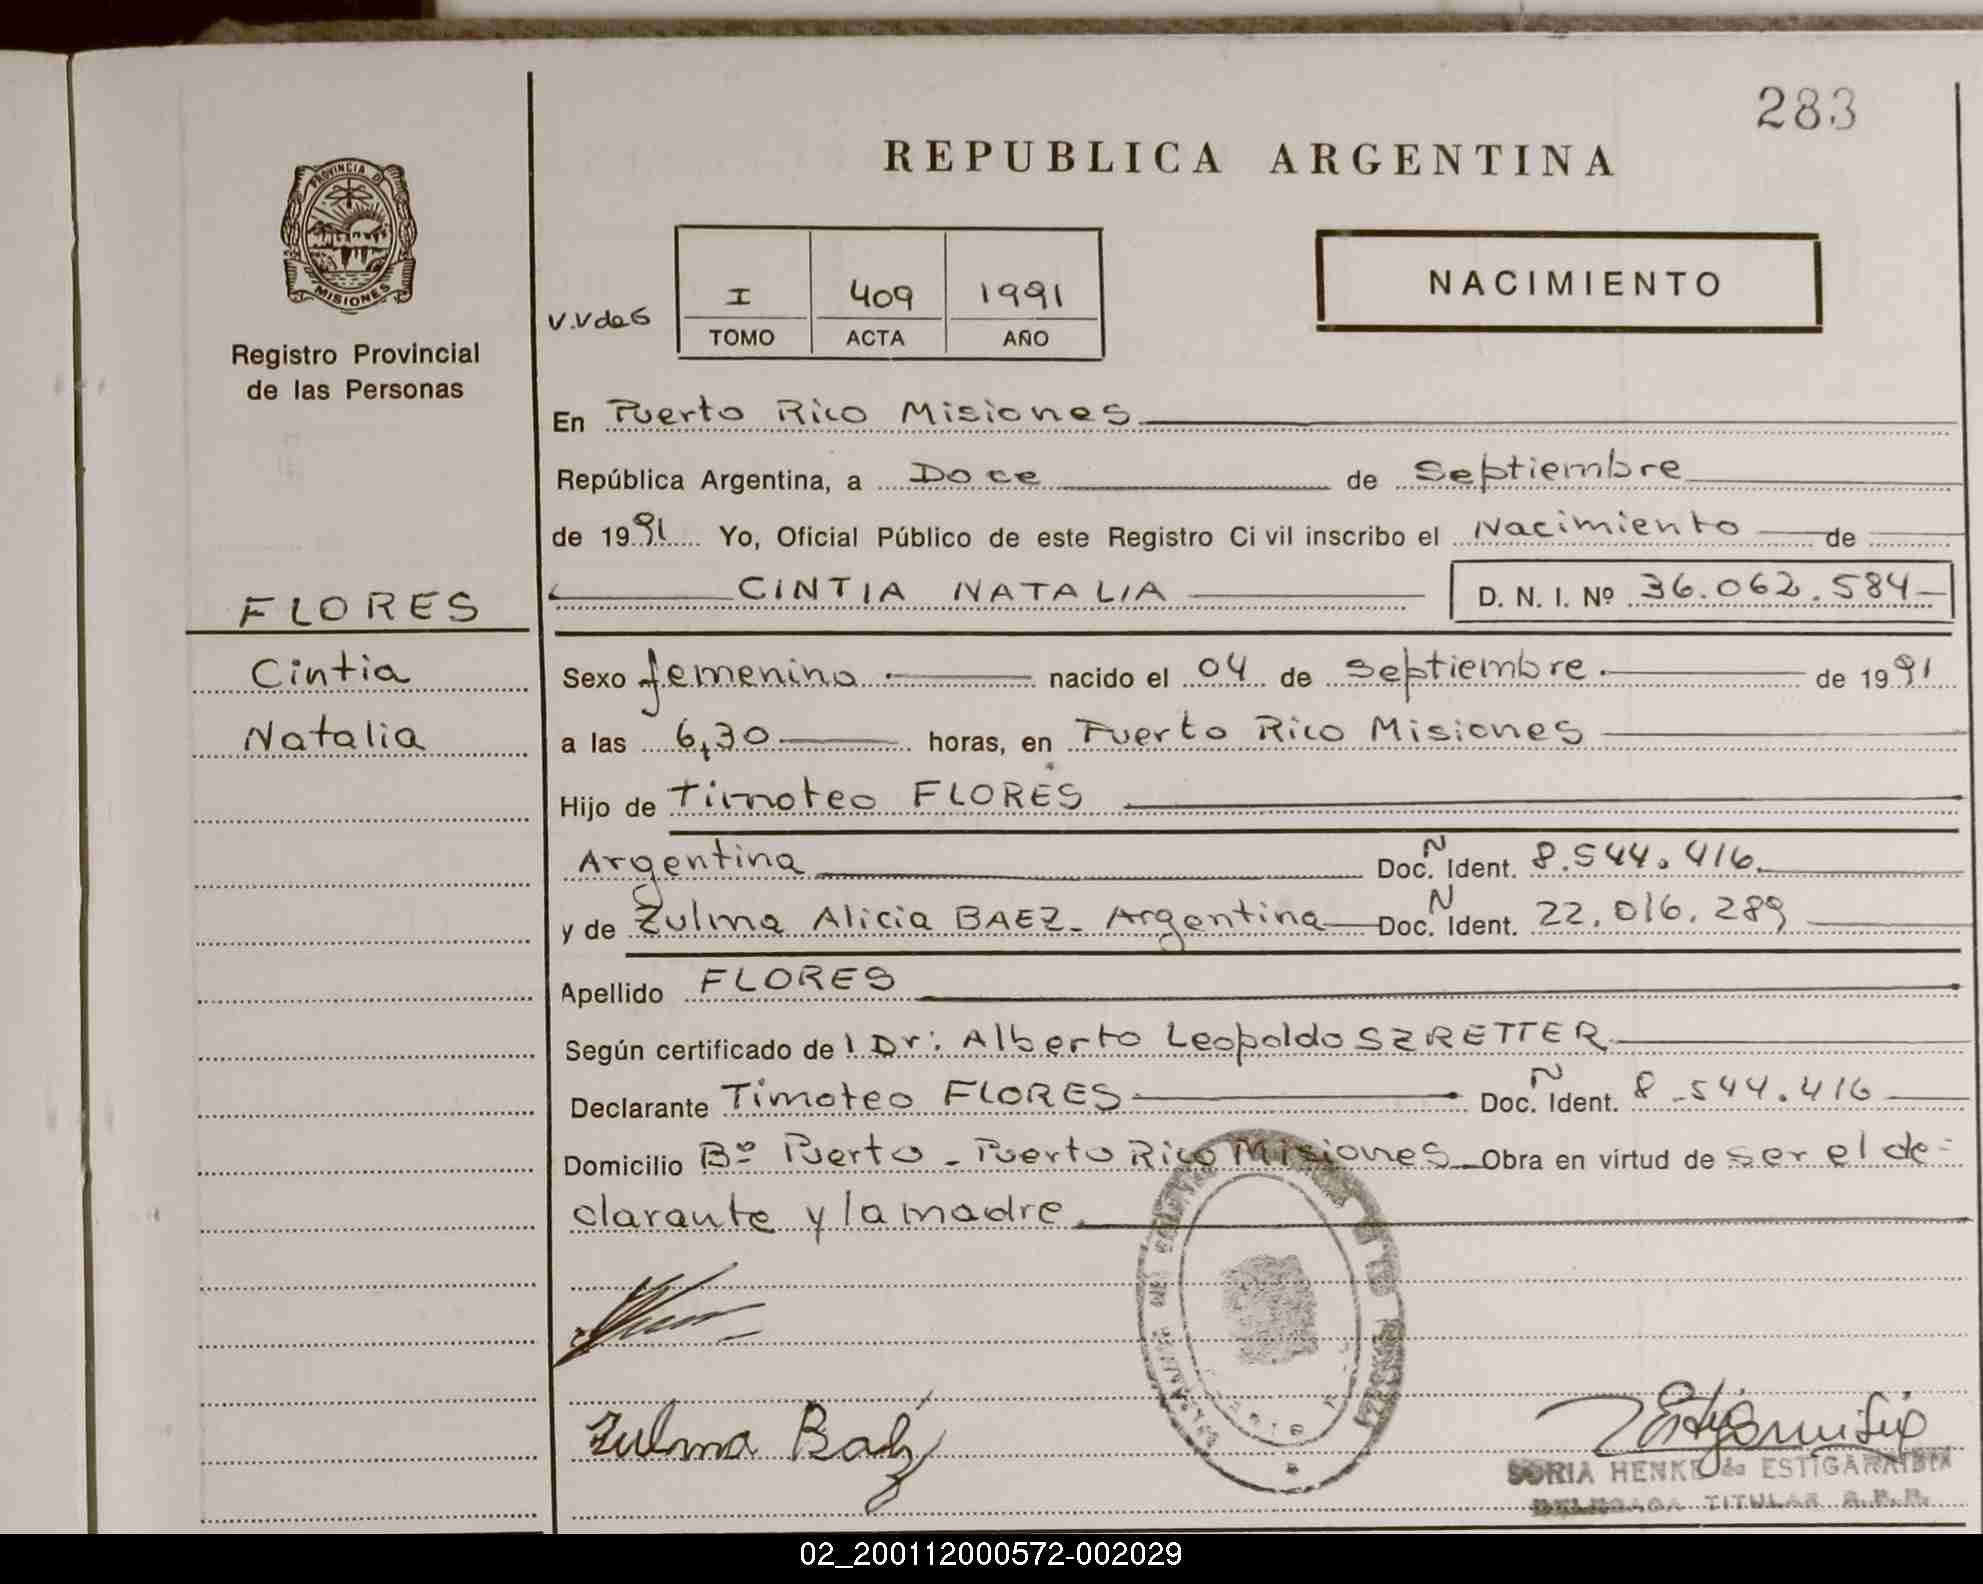 283
REPUBLICA ARGENTINA
PROVINCIA DE
MISIONES
Registro Provincial
de las Personas
V.V de G
I 409 1991
TOMO ACTA AÑO
NACIMIENTO
En Puerto Rico Misiones
República Argentina, a Doce de Septiembre
de 1991 Yo, Oficial Público de este Registro Ci vil inscribo el Nacimiento de
CINTIA NATALIA D. N. I. Nº 36.062.584
FLORES
Cintia
Natalia
Sexo femenino nacido el 04 de Septiembre de 1991
a las 6,30 horas, en Puerto Rico Misiones
Hijo de Timoteo FLORES
Argentina Doc. N Ident. 8.544.416
y de Zulma Alicia BAEZ - Argentina Doc. N Ident. 22.016.289
Apellido FLORES
Según certificado de l Dr: Alberto Leopoldo SZRETTER
Declarante Timoteo FLORES Doc. N Ident. 8.544.416
Domicilio Bº Puerto - Puerto Rico Misiones Obra en virtud de ser el de-
clarante y la madre
Zulma Baez
SORIA HENKE de ESTIGARRIBIA
DELEGADA TITULAR R.P.P.
02_200112000572-002029